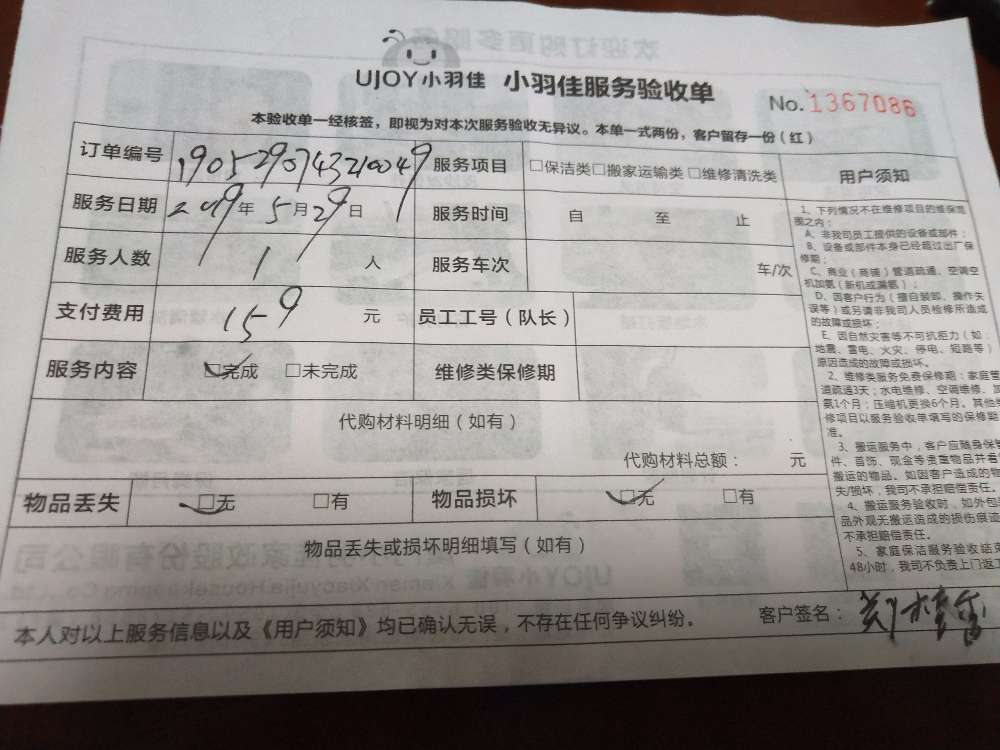 UJOY小羽佳 小羽佳服务验收单
No.1367086
本验收单一经核签，即视为对本次服务验收无异议。本单一式两份，客户留存一份（红）
订单编号 1905290743210049 服务项目 □保洁类□搬家运输类□维修清洗类 用户须知
服务日期 2019年5月29日 服务时间 自 至 止
服务人数 1 人 服务车次 车/次
支付费用 159 元 员工工号（队长）
服务内容 □完成 □未完成 维修类保修期
代购材料明细（如有）
代购材料总额： 元
物品丢失 □无 □有 物品损坏 □无 □有
物品丢失或损坏明细填写（如有）
本人对以上服务信息以及《用户须知》均已确认无误，不存在任何争议纠纷。 客户签名：
1、下列情况不在维修项目的维保范
围之内：
A、非我司员工提供的设备或部件；
B、设备或部件本身已经超过出厂保
修期；
C、商业（商铺）管道疏通、空调空
机加氨（新机或漏氨）；
D、因客户行为（擅自装卸、操作失
误等）或另请非我司人员检修所造成
的故障或损坏；
E、因自然灾害等不可抗拒力（如：
地震、雷电、火灾、停电、短路等）
原因造成的故障或损坏。
2、维修类服务免费保修期：家庭管
道疏通3天；水电维修、空调维修、加
氨1个月；压缩机更换6个月。其他维
修项目以服务验收单填写的保修期
准。
3、搬运服务中，客户应随身保管
件、首饰、现金等贵重物品并看
搬运的物品。如因客户造成的物
失/损坏，我司不承担赔偿责任。
4、搬运服务验收时，如外包装
品外观无搬运造成的损伤痕迹
不承担赔偿责任。
5、家庭保洁服务验收结束
48小时，我司不负责上门返工